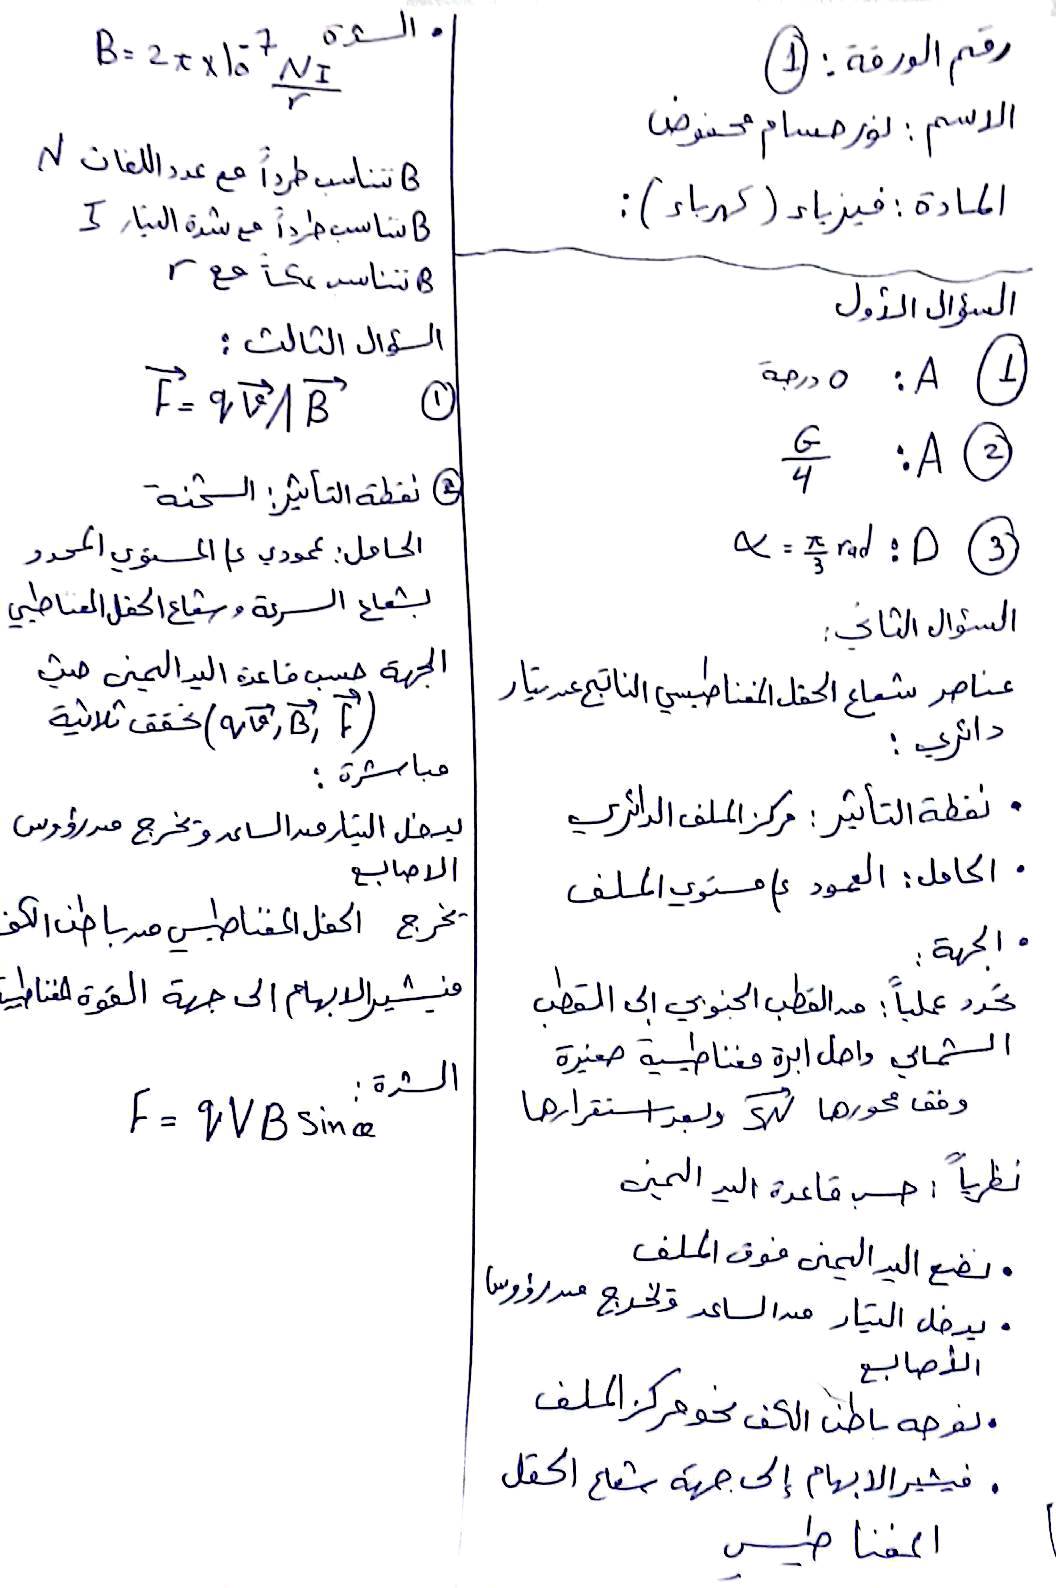 رقم الورقة: ①
الاسم: نور حسام محفوض
المادة: فيزياء (كهرباء):
السؤال الأول
① A: 0 درجة
② A: G/4
③ D: α = π/3 rad
السؤال الثاني:
عناصر شعاع الحقل المغناطيسي الناتج عن تيار
دائري:
• نقطة التأثير: مركز الملف الدائري
• الحامل: العمود ع مستوي الملف
• الجهة:
تحدد عملياً: من القطب الجنوبي إلى القطب
الشمالي داخل ابرة مغناطيسية صغيرة
وفق محورها SN وبعد استقرارها
نظرياً: حسب قاعدة اليد اليمنى
• نضع اليد اليمنى فوق الملف
• يدخل التيار من الساعد ويخرج من رؤوس
الأصابع
• نوجه باطن الكف نحو مركز الملف
• فيشير الابهام إلى جهة شعاع الحقل
المغناطيسي
• الشدة B = 2π x 10^-7 NI/r
B تتناسب طرداً مع عدد اللفات N
B تتناسب طرداً مع شدة التيار I
B تتناسب عكساً مع r
السؤال الثالث:
① F⃗ = q v⃗ ∧ B⃗
② نقطة التأثير: الشحنة
الحامل: عمودي ع المستوي المحدد
بشعاع السرعة وشعاع الحقل المغناطيي
الجهة حسب قاعدة اليد اليمنى حيث
(q v⃗, B⃗, F⃗) تحقق ثلاثية
مباشرة:
يدخل التيار من الساعد ويخرج من رؤوس
الاصابع
يخرج الحقل المغناطيسي من باطن الكف
فيشير الابهام الى جهة القوة
الشدة:
F = qVB sin α